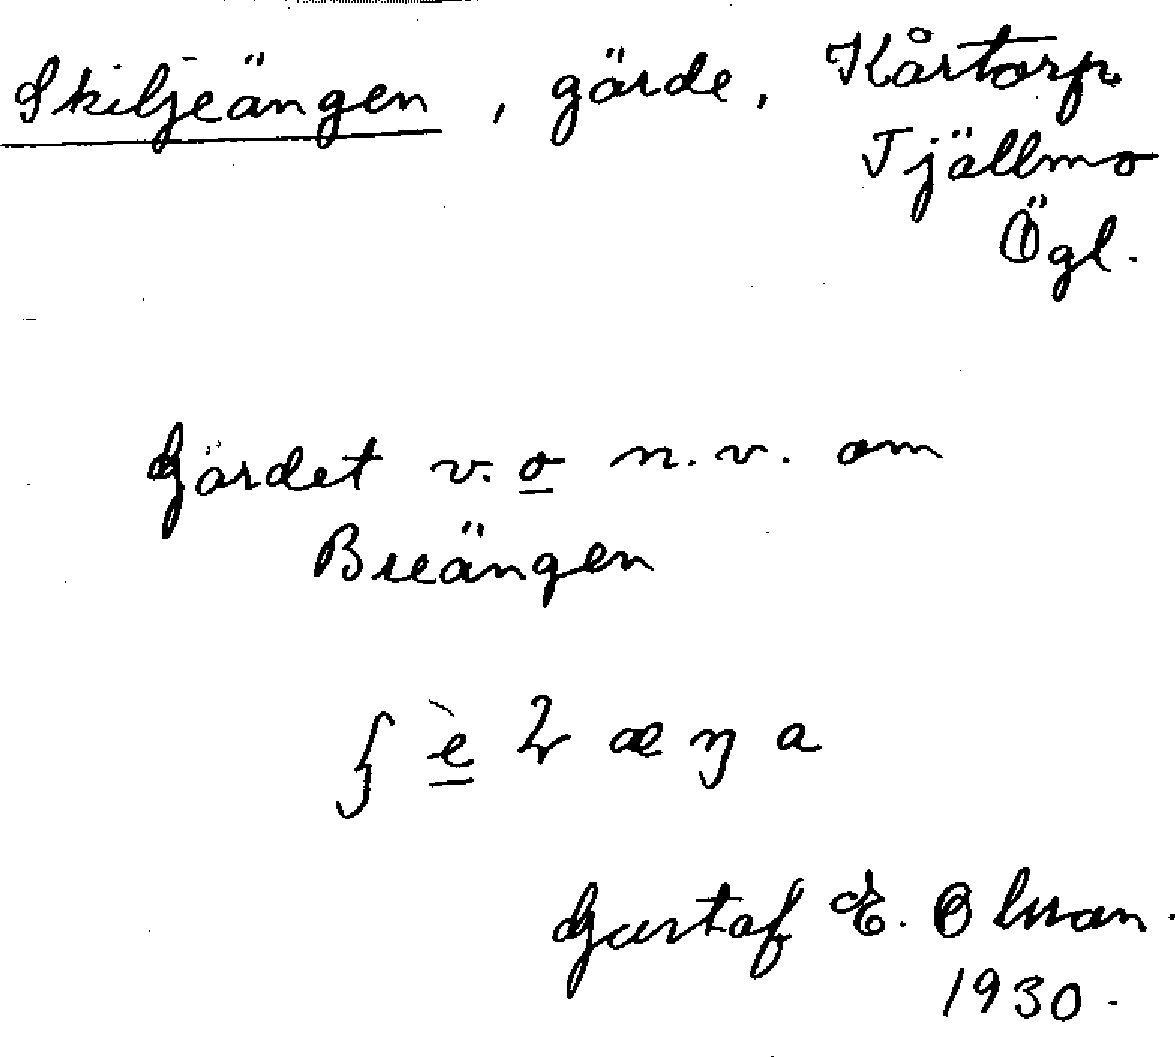 Skiljeängen, gärde, Kårtorp
Tjällmo
Ögl.
Gärdet v. o n.v. om
Breängen
Gustaf E. Olsson.
1930.